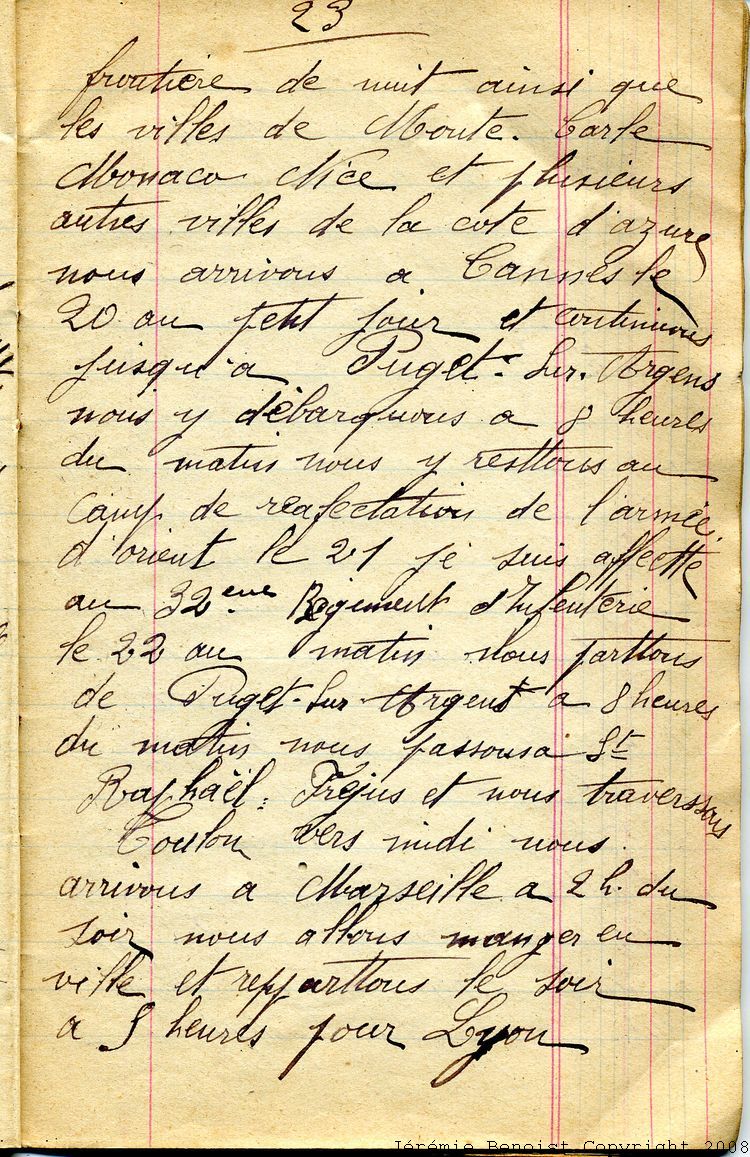 23
frontière de nuit ainsi que
les villes de Monte-Carle
Monaco Nice et plusieurs
autres villes de la cote d'azure
nous arrivons a Cannes le
20 au petit jour et continuons
jusqu'a Puget-Sur-Argens
nous y débarquons a 8 heures
du matin nous y resttons au
camp de reafectation de l'armée
d'orient le 21 je suis affectté
au 32eme Regiment d'Infenterie
le 22 au matin Nous parttons
de Puget-Sur-Argens a 8 heures
du matin nous passons a St
Raphaël, Fréjus et nous traverssons
Toulon vers midi nous
arrivons a Marseille a 2 h. du
soir nous allons manger en
ville et repparttons le soir
a 8 heures pour Lyon
Jérémie Benoist Copyright 2008